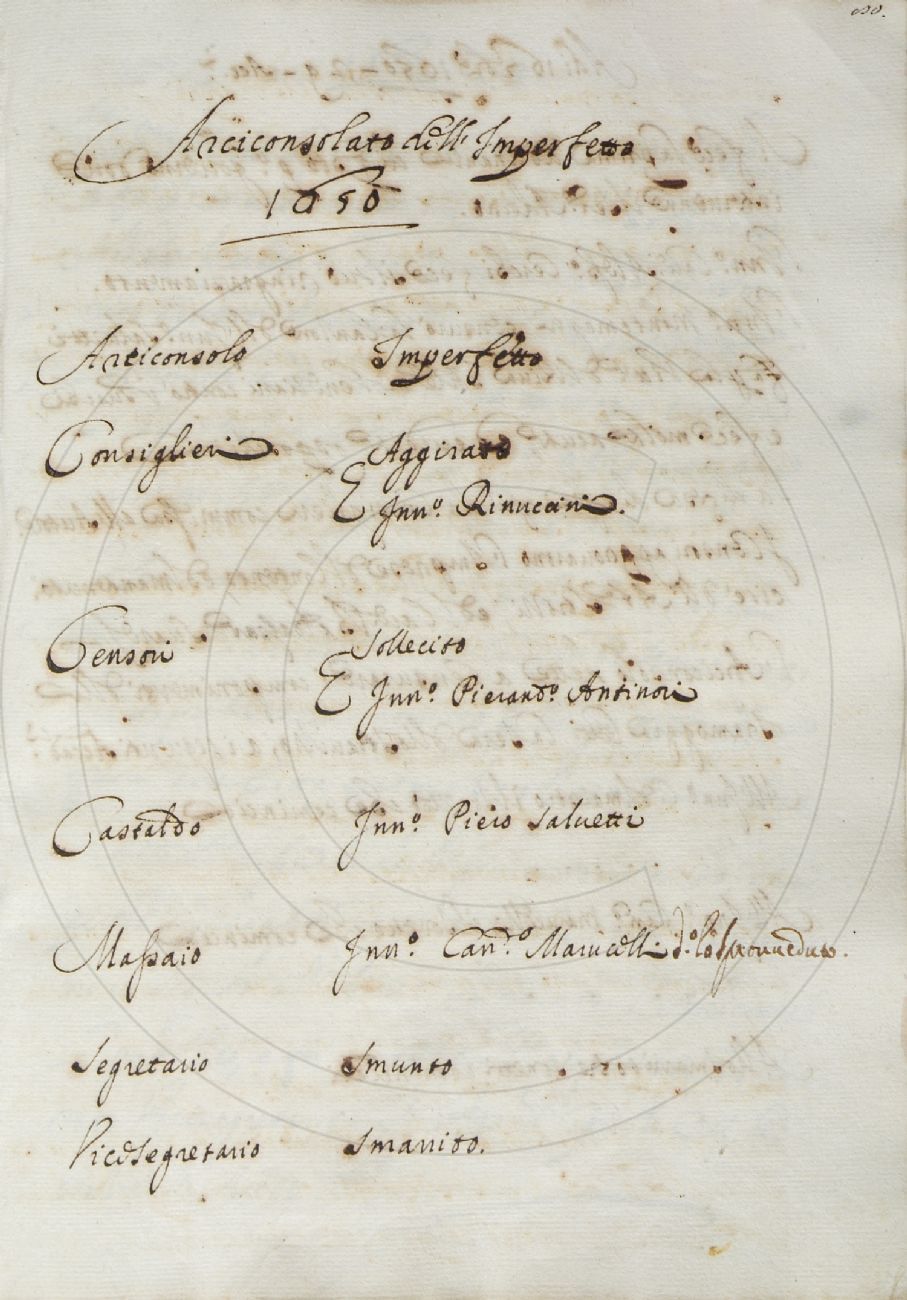 Arciconsolato dell'Imperfetto
1650
Arciconsolo Imperfetto
Consiglieri Aggirato
E Inno. Rinuccini.
Censori Sollecito
E Inno. Pierando. Antinori
Castaldo Inno. Piero Salvetti
Massaio Inno. Cando. Marucelli do. lo Sprovveduto.
Segretario Smunto
Vicesegretario Smarrito.